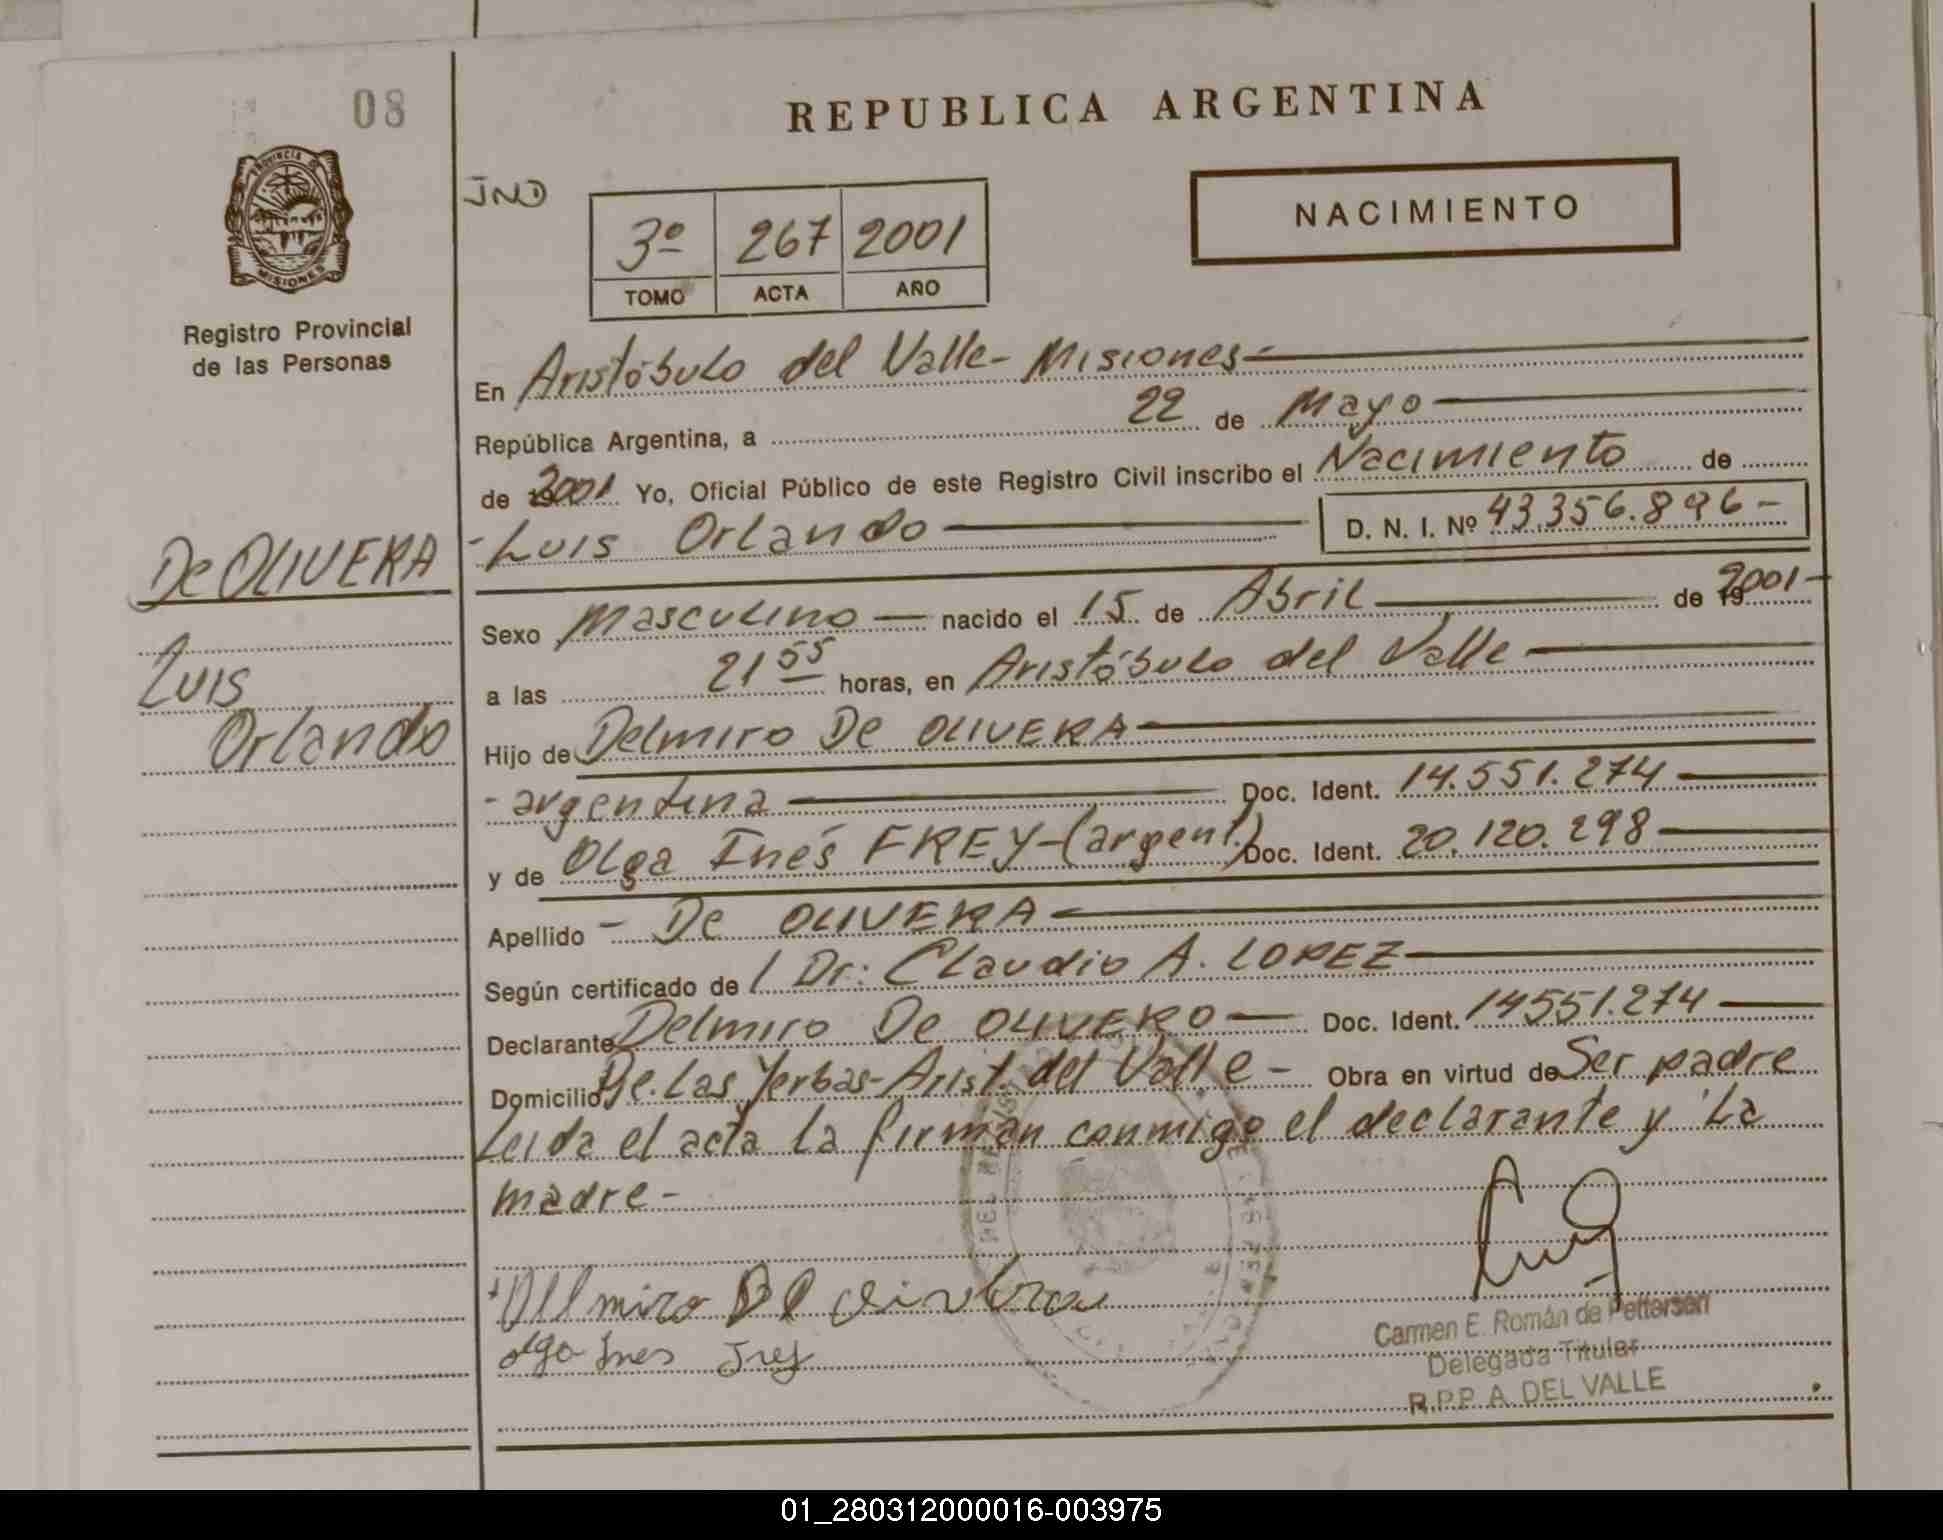 08
REPUBLICA ARGENTINA
PROVINCIA DE
MISIONES
Registro Provincial
de las Personas
NACIMIENTO
3º 267 2001
TOMO ACTA AÑO
En Aristóbulo del Valle - Misiones -
República Argentina, a 22 de Mayo
de 2001 Yo, Oficial Público de este Registro Civil inscribo el Nacimiento de
- Luis Orlando D. N. I. Nº 43.356.896 -
De OLIVERA
Luis
Orlando
Sexo Masculino nacido el 15 de Abril de 2001 -
a las 21 55 horas, en Aristóbulo del Valle
Hijo de Delmiro De OLIVERA
- argentina Doc. Ident. 14.551.274
y de Olga Inés FREY - (argent.) Doc. Ident. 20.120.298
Apellido - De OLIVERA
Según certificado de / Dr: Claudio A. LOPEZ
Declarante Delmiro De OLIVERO Doc. Ident. 14551.274
Domicilio De. Las Yerbas - Arist. del Valle - Obra en virtud de Ser padre
Leida el acta la firman conmigo el declarante y la
madre -
Delmiro De olivera
olga Ines Frey
Carmen E. Román de Pettersen
Delegada Titular
R.P.P. A. DEL VALLE
01_280312000016-003975